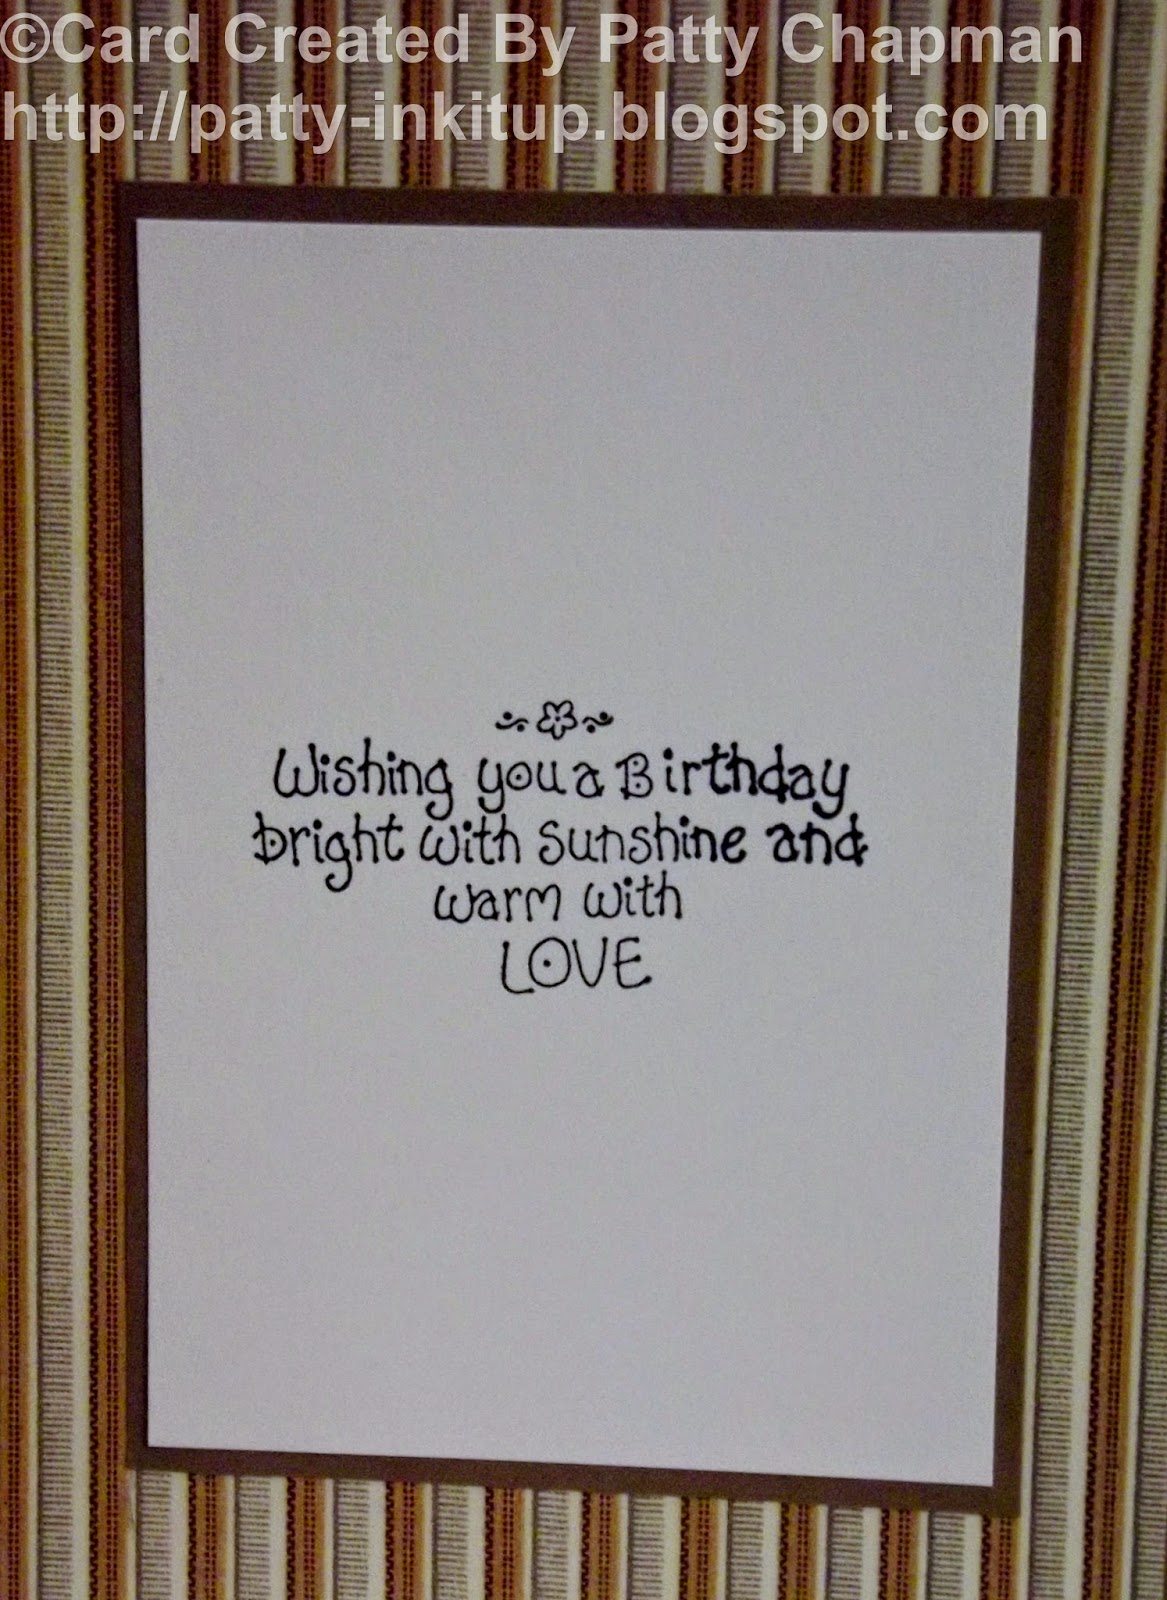 ©Card Created By Patty Chapman
http://patty-inkitup.blogspot.com
Wishing you a Birthday
bright with sunshine and
warm with
LOVE